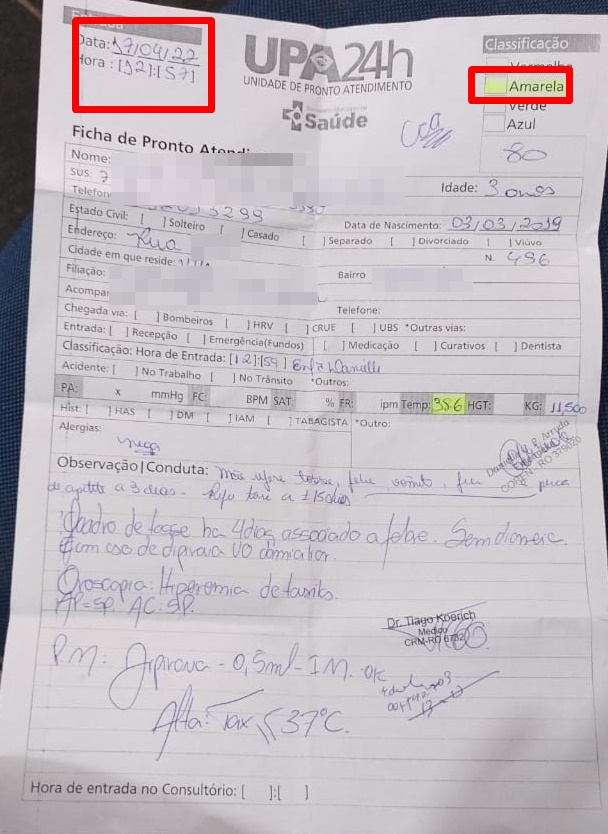 Entrada
Data: 17/04/22
Hora: [12]:[57]
UPA24h
UNIDADE DE PRONTO ATENDIMENTO
Saúde
Classificação
Vermelha
Amarela
Verde
Azul
80
Ficha de Pronto Atendi
Nome:
SUS: 7
Telefon
Idade: 3 anos
Estado Civil: [ ] Solteiro [ ] Casado [ ] Separado [ ] Divorciado [ ] Viúvo
Data de Nascimento: 03/03/2019
Endereço: Rua
N. 496
Cidade em que reside:
Filiação:
Bairro
Acompa
Telefone:
Chegada via: [ ] Bombeiros [ ] HRV [ ] CRUE [ ] UBS *Outras vias:
Entrada: [ ] Recepção [ ] Emergência(Fundos) [ ] Medicação [ ] Curativos [ ] Dentista
Classificação: Hora de Entrada: [12]:[59]
Acidente: [ ] No Trabalho [ ] No Trânsito *Outros:
PA: x mmHg FC: BPM SAT: % FR: ipm Temp: 38.6 HGT: KG: 11,500
Hist: [ ] HAS [ ] DM [ ] IAM [ ] TABAGISTA *Outro:
Alergias: nega
Observação/Conduta: Mãe refere tosse, febre, vômito,
de apetite a 3 dias
Quadro de tosse há 4 dias associado a febre. Sem
Fem uso de dipirona VO domiciliar.
Oroscopia: Hiperemia de
AP=SP. AC: SP.
Dr. Tiago Koerich
Médico
CRM-RO 6732
P.M: Dipirona - 0,5ml - IM. OK
Alta: Tax < 37°C.
Hora de entrada no Consultório: [ ]:[ ]